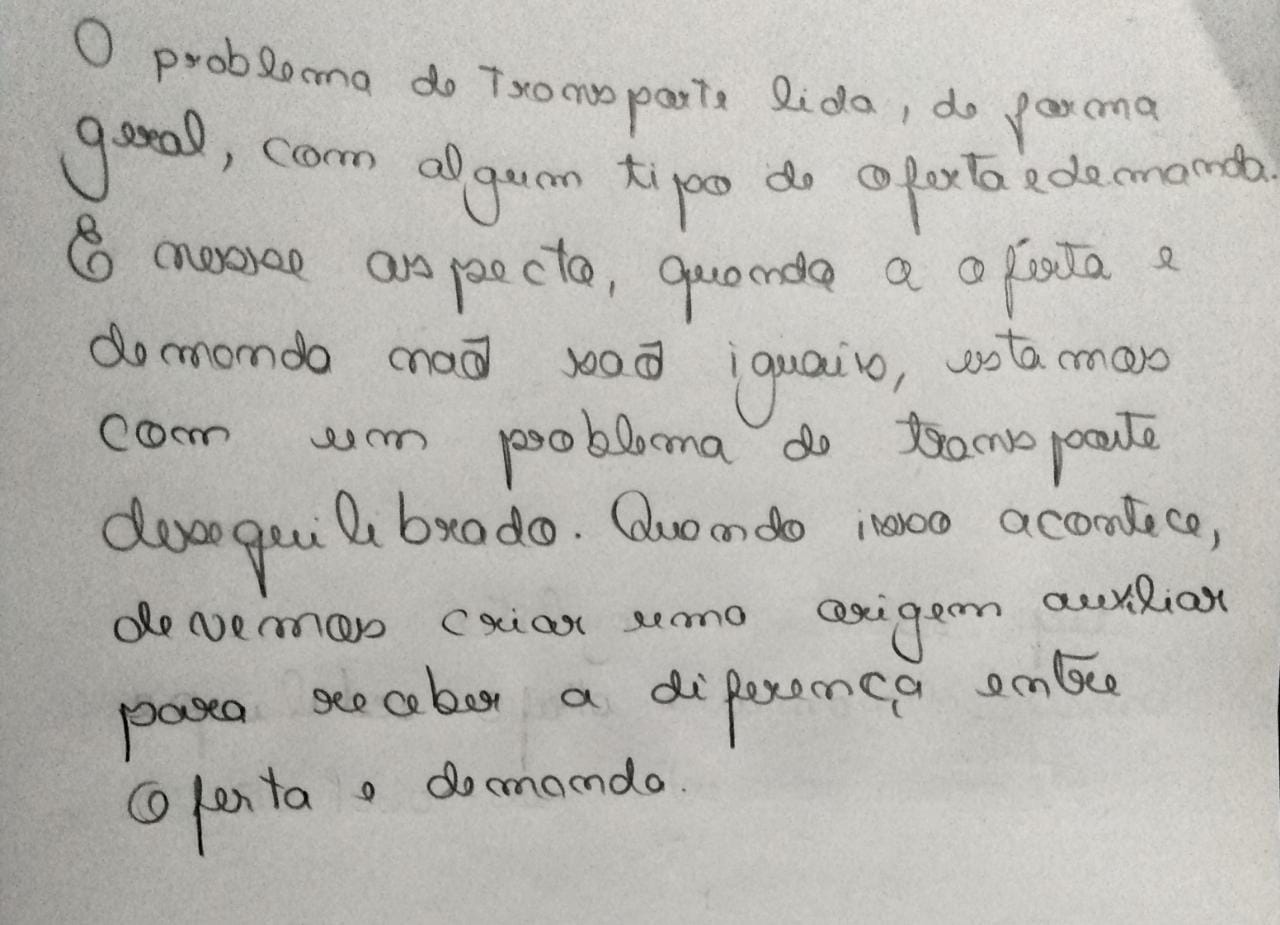 O problema de Transporte lida, de forma
geral, com algum tipo de oferta e demanda.
E nesse aspecto, quando a oferta e
demanda não são iguais, estamos
com um problema de transporte
desequilibrado. Quando isso acontece,
devemos criar uma origem auxiliar
para receber a diferença entre
Oferta e demanda.